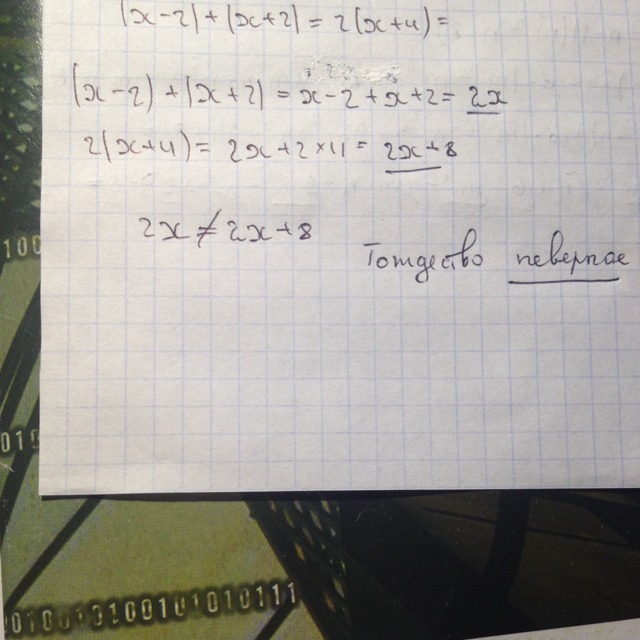 (x-2)+(x+2)=2(x+4)=
(x-2)+(x+2)=x-2+x+2=2x
2(x+4)=2x+2×4=2x+8
2x≠2x+8
Тотдество неверное
100
010
01010001100101010111